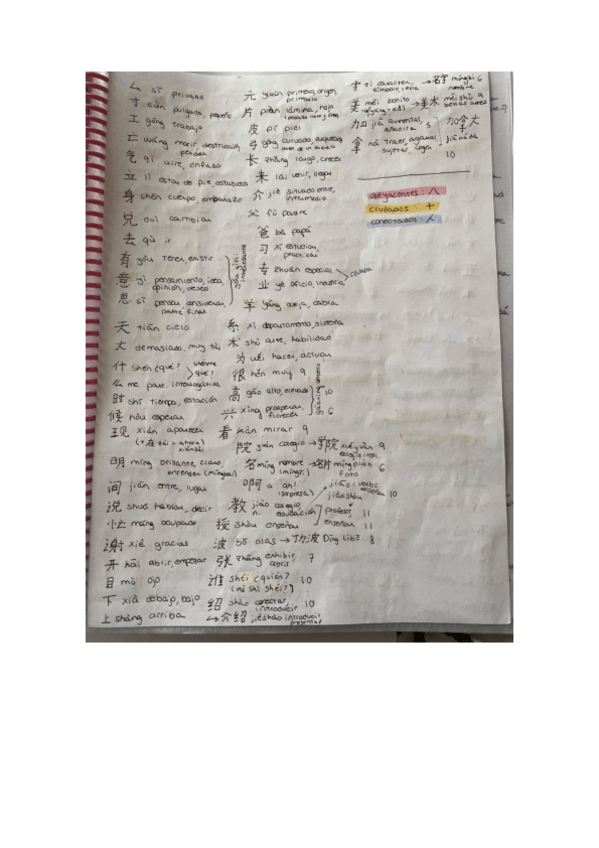 厶 sī privado
寸 cùn pulgada, pequeño
工 gōng trabajo
亡 wáng morir, destrucción, perder
气 qì aire, enfado
立 lì estar de pie, establecer
身 shēn cuerpo, embarazo
兑 duì cambiar
去 qù ir
有 yǒu tener, existir
意 yì pensamiento, idea, opinión, deseo
思 sī pensar, considerar
yǒu yìsi: interesante
天 tiān cielo
太 demasiado, muy
什 shén ¿qué?
shénme qué?
么 me part. interrogativa
时 shí tiempo, estación
候 hòu esperar
现 xiàn aparecer
(+在 zài = ahora)
xiànzài
明 míng brillante, claro, entender (míngbai)
间 jiān entre, lugar
说 shuō hablar, decir
忙 máng ocupado
谢 xiè gracias
开 kāi abrir, empezar
目 mù ojo
下 xià debajo, bajo
上 shàng arriba
元 yuán primero, origen
片 piàn lámina, hoja
皮 pí piel
弓 gōng curvado, arqueado
长 zhǎng largo, crecer
来 lái venir, llegar
介 jiè situado entre, intermedio
父 fù padre
爸 bà papá
习 xí estudiar, practicar
专 zhuān especial
业 yè oficio, industria
carrera
羊 yáng oveja, cabra
系 xì departamento, sistema
术 shù arte, habilidad
为 wéi hacer, actuar
很 hěn muy 9
高 gāo alto, elevado 10
兴 xìng prosperar, florecer 6
看 kàn mirar 9
院 yuàn colegio → 学院 xuéyuàn 9
名 míng nombre → 名片 míngpiàn 6
(míngzi) foto
啊 a ah! (sorpresa)
教 jiào colegio, n. educación
jiāo: verbo enseñar 10
jiàoshòu
授 shòu enseñar
profesor, 11
enseñar 11
波 bō olas → 丁力波 Dīng Lìbō 8
张 zhāng exhibir, abrir 7
谁 shéi ¿quién? 10
(nǐ shì shéi?)
绍 shào conectar, introducir 10
↳ 介绍 jièshào introducir, presentar
字 zì carácter → 名字 míngzi 6
nombre
美 měi bonito → 美术 měishù 9
bellas artes
加 jiā aumentar, añadir 5
拿 ná traer, agarrar, sujetar, coger 10
加拿大
jiānádà
adyacentes: 八
cruzados: +
conectados: 人